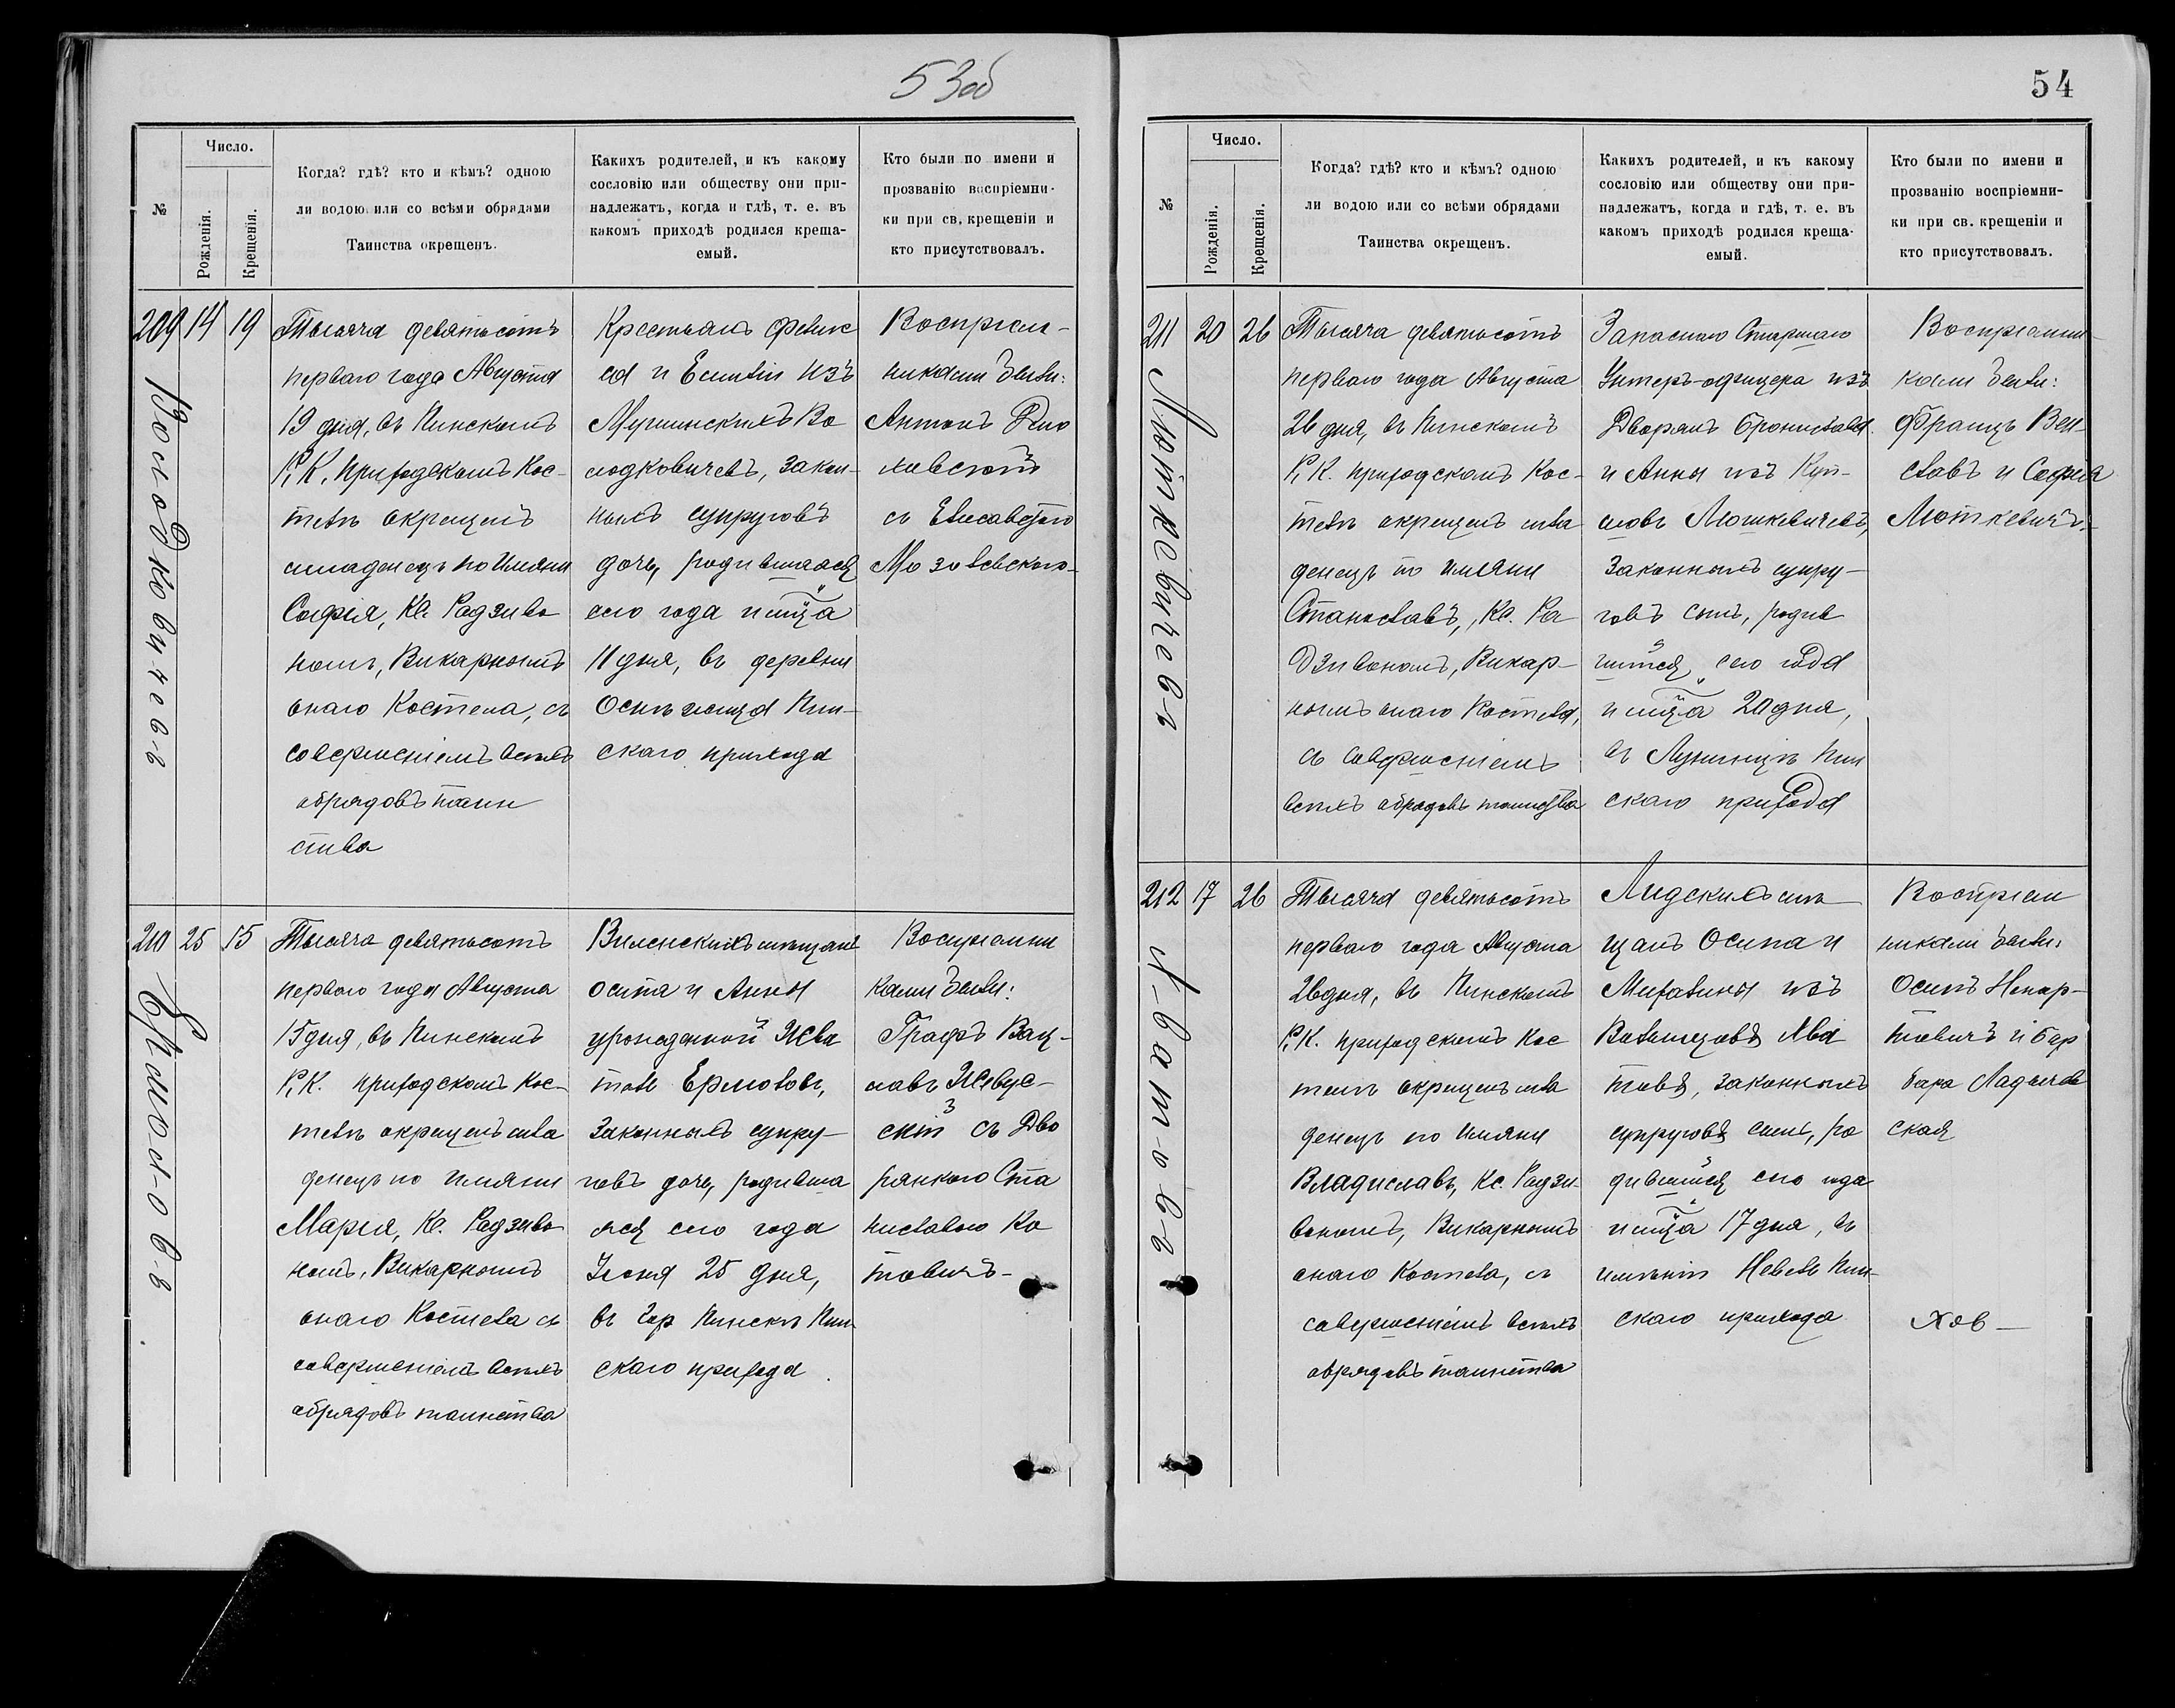 53об
Число.
№
Рожденія.
Крещенія.
Когда? гдѣ? кто и кѣмъ? одною
ли водою или со всѣми обрядами
Таинства окрещенъ.
Какихъ родителей, и къ какому
сословію или обществу они при-
надлежатъ, когда и гдѣ, т. е. въ
какомъ приходѣ родился креща-
емый.
Кто были по имени и
прозванію воспріемни-
ки при св. крещеніи и
кто присутствовалъ.
209 14 19
Володковичевъ
Тысяча девятьсотъ
перваго года Августа
19 дня, въ Пинскомъ
Р. К. приходскомъ Кос-
телѣ окрещенъ
младенецъ по имяни
Софія, Кс. Радзиво
номъ, Викарнымъ
онаго Костела, съ
совершеніемъ всѣхъ
обрядовъ таин
ства
Крестьянъ Феликс
са и Емиліи изъ
Мушинскихъ Во
лодковичевъ, закон-
ныхъ супруговъ
дочь, родившаяся
сего года и мца
11 дня, въ деревни
Пин-
скаго прихода
Воспріем-
никами были:
Антонъ
съ Елисаветою
210 25 15
Ермоловъ
Тысяча девятьсотъ
перваго года Августа
15 дня, въ Пинскомъ
Р. К. приходскомъ Кос-
телѣ окрещенъ мла
денецъ по имяни
Марія, Кс. Радзиво
номъ, Викарнымъ
онаго Костела съ
совершеніемъ всѣхъ
обрядовъ таинства
Виленскихъ мѣщанъ
Осипа и Анны
урожденной
Ермоловъ,
законныхъ супру-
говъ дочь, родивша
яся сего года
Іюня 25 дня,
въ гор Пинскѣ Пин
скаго прихода
Воспріемни
ками были:
Графъ Вац-
лавъ Ржевус-
скій съ Дво
рянкою Ста
ниславою Ко
товичъ-
54
Число.
№
Рожденія.
Крещенія.
Когда? гдѣ? кто и кѣмъ? одною
ли водою или со всѣми обрядами
Таинства окрещенъ.
Какихъ родителей, и къ какому
сословію или обществу они при-
надлежатъ, когда и гдѣ, т. е. въ
какомъ приходѣ родился креща-
емый.
Кто были по имени и
прозванію воспріемни-
ки при св. крещеніи и
кто присутствовалъ.
211 20 26
Люткевичевъ
Тысяча девятьсотъ
перваго года Августа
26 дня, въ Пинскомъ
Р. К. приходскомъ Кос-
телѣ окрещенъ мла
денецъ по имяни
Станиславъ, Кс. Ра
дзивономъ, Викар-
нымъ онаго Костела,
съ совершеніемъ
всѣхъ обрядовъ таинства
Запаснаго Старшаго
Унтеръ-офицера изъ
Дворянъ Бронислава
и Анны изъ
Люткевичевъ,
законныхъ супру-
говъ сынъ, родив
шійся, сего года
и мца 20 дня,
въ Лунинцѣ Пин
скаго прихода
Воспріемни-
ками были:
Францъ Вен-
славъ и Софія
Люткевичъ.
212 17 26
Тысяча девятьсотъ
перваго года Августа
26 дня, въ Пинскомъ
Р. К. приходскомъ Кос
телѣ окрещенъ мла
денецъ по имяни
Владиславъ, Кс. Радзи
вономъ, Викарнымъ
онаго Костела, съ
совершеніемъ всѣхъ
обрядовъ таинства
Лидскихъ мѣ
щанъ Осипа и
Михалины изъ
законныхъ
супруговъ сынъ, ро
дившійся сего года
и мца 17 дня, въ
имѣніи Невель Пин-
скаго прихода
Воспріем
никами были:
Осипъ
и Бар
бара
ская